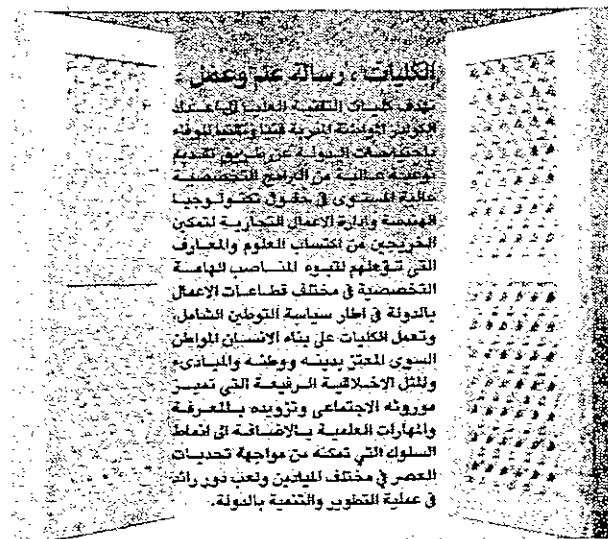 الكليات ، رسالة علم وعمل
تهدف كليات التقنية العليا الى اعداد
الكوادر المواطنة المدربة فنيا وتقنيا للوفاء
باحتياجات الدولة عن طريق تقديم
نوعية عالية من البرامج التخصصية
عالية المستوى في حقول تكنولوجيا
الهندسة وادارة الاعمال التجارية لتمكن
الخريجين من اكتساب العلوم والمعارف
التي تؤهلهم لتبوء المناصب الهامة
التخصصية في مختلف قطاعات الاعمال
بالدولة في اطار سياسة التوطين الشامل،
وتعمل الكليات على بناء الانسان المواطن
السوي المعتز بدينه ووطنه والمبادىء
والمثل الاخلاقية الرفيعة التي تميز
موروثه الاجتماعي وتزويده بالمعرفة
والمهارات العلمية بالاضافة الى انماط
السلوك التي تمكنه من مواجهة تحديات
العصر في مختلف الميادين ولعب دور رائد
في عملية التطوير والتنمية بالدولة.